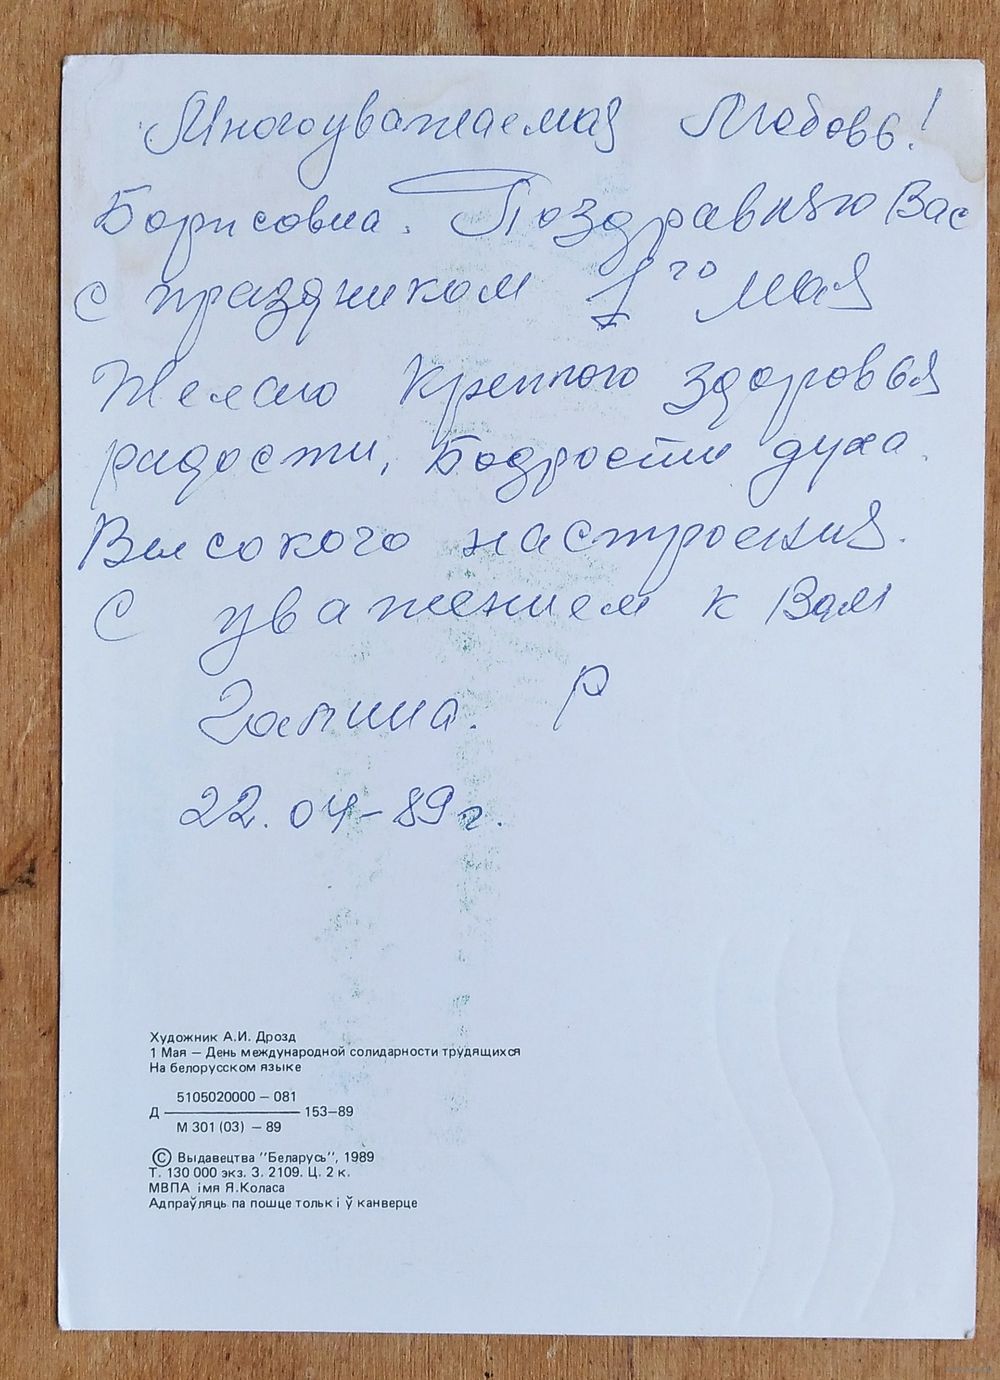 Многоуважаемая Любовь!
Борисовна. Поздравляю Вас
с праздником 1го мая
Желаю крепкого здоровья
радости, бодрости духа.
Высокого настроения.
С уважением к Вам
Галина. Р
22.04-89г.
Художник А.И. Дрозд
1 Мая – День международной солидарности трудящихся
На белорусском языке
5105020000 – 081
Д 153–89
М 301 (03) – 89
© Выдавецтва "Беларусь", 1989
Т. 130 000 экз. З. 2109. Ц. 2 к.
МВПА імя Я.Коласа
Адпраўляць па пошце толькі ў канверце